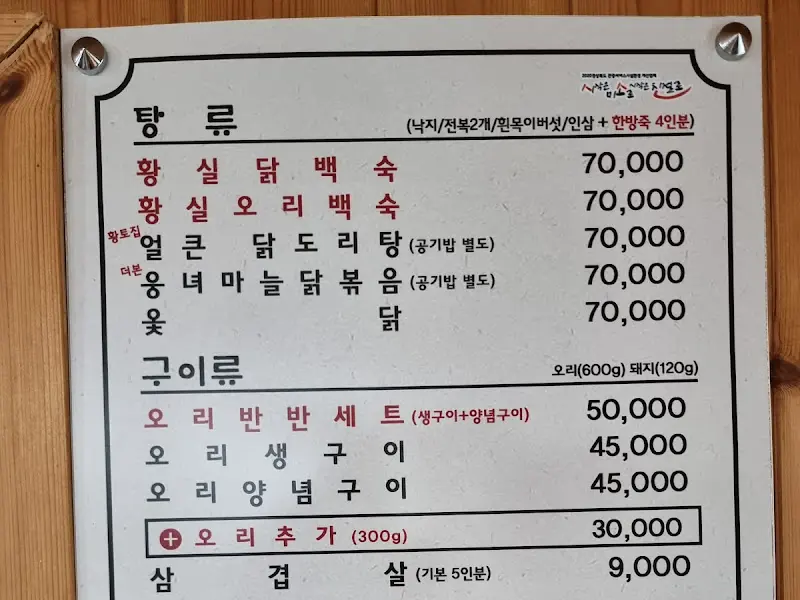 2020경상북도 관광서비스시설환경 개선업체
시작은 미소로 시작은 친절로
탕 류 (낙지/전복2개/흰목이버섯/인삼 + 한방죽 4인분)
황 실 닭 백 숙 70,000
황 실 오 리 백 숙 70,000
황토집 얼 큰 닭 도 리 탕 (공기밥 별도) 70,000
더본 웅 녀 마 늘 닭 볶 음 (공기밥 별도) 70,000
옻 닭 70,000
구이류 오리(600g) 돼지(120g)
오 리 반 반 세 트 (생구이+양념구이) 50,000
오 리 생 구 이 45,000
오 리 양 념 구 이 45,000
+ 오 리 추 가 (300g) 30,000
삼 겹 살 (기본 5인분) 9,000